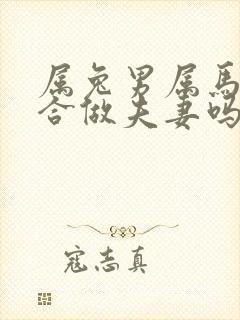 属兔男属馬
合做夫妻吗
寇志真